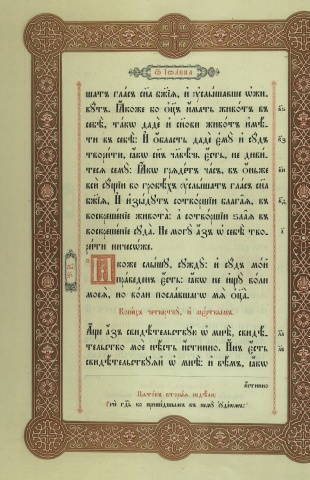 Ѿ Іѡа́нна
шатъ гла́съ сн҃а бж҃їѧ, и҆ ᲂу҆слы́шавше ѡ҆жи-
вꙋ́тъ. Ꙗ҆́коже бо ѻ҆ц҃ъ и҆́мать живо́тъ въ
себѣ̀, та́кѡ дадѐ и҆ сн҃ови живо́тъ и҆мѣ́-
ти въ себѣ̀: И҆ ѻ҆́бласть дадѐ є҆мꙋ̀ и҆ сꙋ́дъ
твори́ти, ꙗ҆́кѡ сн҃ъ чл҃вѣ́чь є҆́сть, не диви́-
теся семꙋ̀: Ꙗ҆́кѡ грѧде́тъ ча́съ, въ ѻ҆́ньже
всѝ сꙋ́щїи во гробѣ́хъ ᲂу҆слы́шатъ гла́съ сн҃а
бж҃їѧ, И҆ и҆зы́дꙋтъ сотво́ршїи блага́ѧ, въ
воскреше́нїе живота̀: а҆ сотво́ршїи ѕла́ѧ въ
воскреше́нїе сꙋда̀. Не могꙋ̀ а҆́зъ ѡ҆ себѣ̀ тво-
ри́ти ничесѡ́же.
Ꙗ҆́коже слы́шꙋ, сꙋждꙋ̀: и҆ сꙋ́дъ мо́й
пра́веденъ є҆́сть: ꙗ҆́кѡ не и҆щꙋ̀ во́ли
моеѧ̀, но во́ли посла́вшагѡ мѧ̀ ѻ҆ц҃а̀.
Коне́цъ четвер��кꙋ̀, и҆ ме́ртвымъ.
А҆́ще а҆́зъ свидѣ́тельствꙋю ѡ҆ мнѣ̀, свидѣ́-
тельство моѐ нѣ́сть и҆́стинно. И҆́нъ є҆́сть
свидѣ́тельствꙋѧй ѡ҆ мнѣ̀: и҆ вѣ́мъ, ꙗ҆́кѡ
и҆́стинно
Пѧто́къ вторы́ѧ недѣ́ли:
Речѐ гдⷭ҇ь ко прише́дшымъ къ немꙋ̀ і҆ꙋде́ѡмъ: